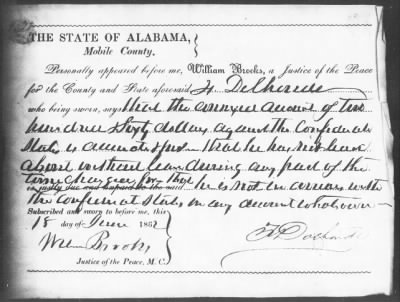 THE STATE OF ALABAMA,
Mobile County.
Personally appeared before me, William Brooks, a Justice of the Peace
for the County and State aforesaid
who being sworn, says that the annexed account of two
hundred & Sixty dollars against the Confederate
States is accurate & just that he has not been
absent without leave during any part of the
time charged for that
is justly due and unpaid to the said he is not in arrears with
the Confederate States on any account whatsoever
Subscribed and sworn to before me, this
18 day of June 1862
Wm Brooks
Justice of the Peace, M. C.